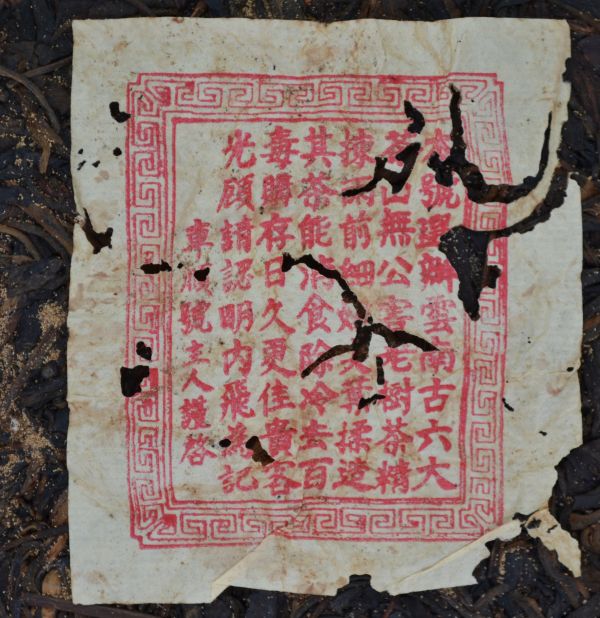 本號選辦雲南古六大
茶山無公害老樹茶精
揀雨前細嫩尖葉揉造
其茶能消食除冷去百
毒購存日久更佳貴客
光顧請認明內飛為記
車順號主人謹啓